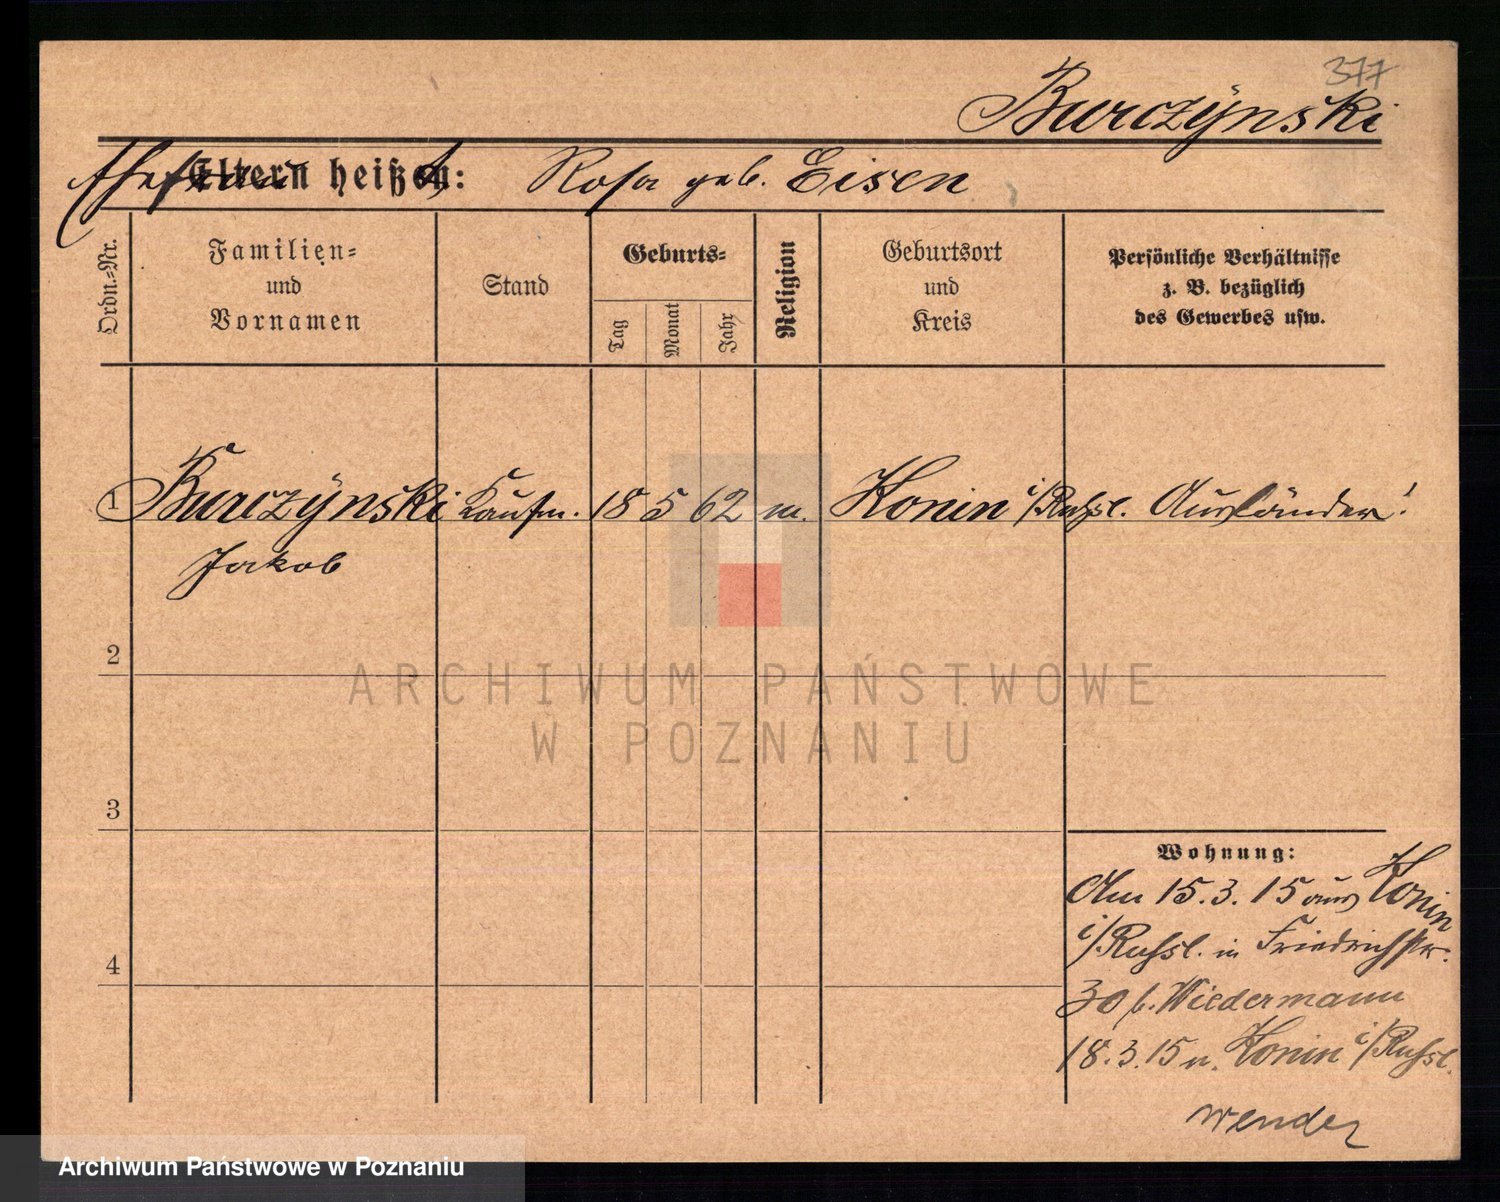 377
Burczÿnski
Ehefrau heißt: Rosa geb. Eisen
Eltern heißen:
Ordn.=Nr.
Familien=
und
Vornamen
Stand
Geburts=
Tag
Monat
Jahr
Religion
Geburtsort
und
Kreis
Persönliche Verhältnisse
z. B. bezüglich
des Gewerbes usw.
1 Burczÿnski Kaufm. 18 5 62 m. Konin i/Russl. Ausländer!
Jakob
2
ARCHIWUM PAŃSTWOWE
W POZNANIU
3
Wohnung:
Am 15.3.15 aus Konin
i/Russl. in Friedrichstr.
30 b. Wiedermann
18.3.15 n. Konin i/Russl.
4
wenden
Archiwum Państwowe w Poznaniu